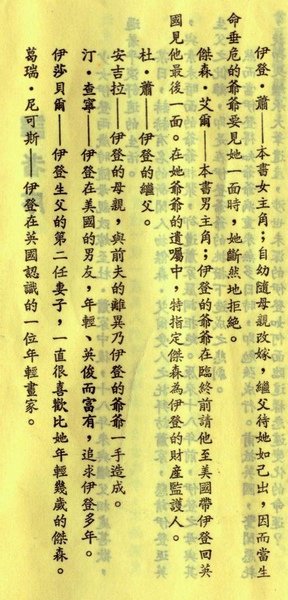 伊登．蕭——本書女主角；自幼隨母親改嫁，繼父待她如己出，因而當生
命垂危的爺爺要見她一面時，她斷然地拒絕。
傑森．艾爾——本書男主角；伊登的爺爺在臨終前請他至美國帶伊登回英
國見他最後一面。在她爺爺的遺囑中，特指定傑森為伊登的財產監護人。
杜．蕭——伊登的繼父。
安吉拉——伊登的母親，與前夫的離異乃伊登的爺爺一手造成。
汀．查寧——伊登在美國的男友，年輕、英俊而富有，追求伊登多年。
伊莎貝爾——伊登生父的第二任妻子，一直很喜歡比她年輕幾歲的傑森。
葛瑞．尼可斯——伊登在英國認識的一位年輕畫家。